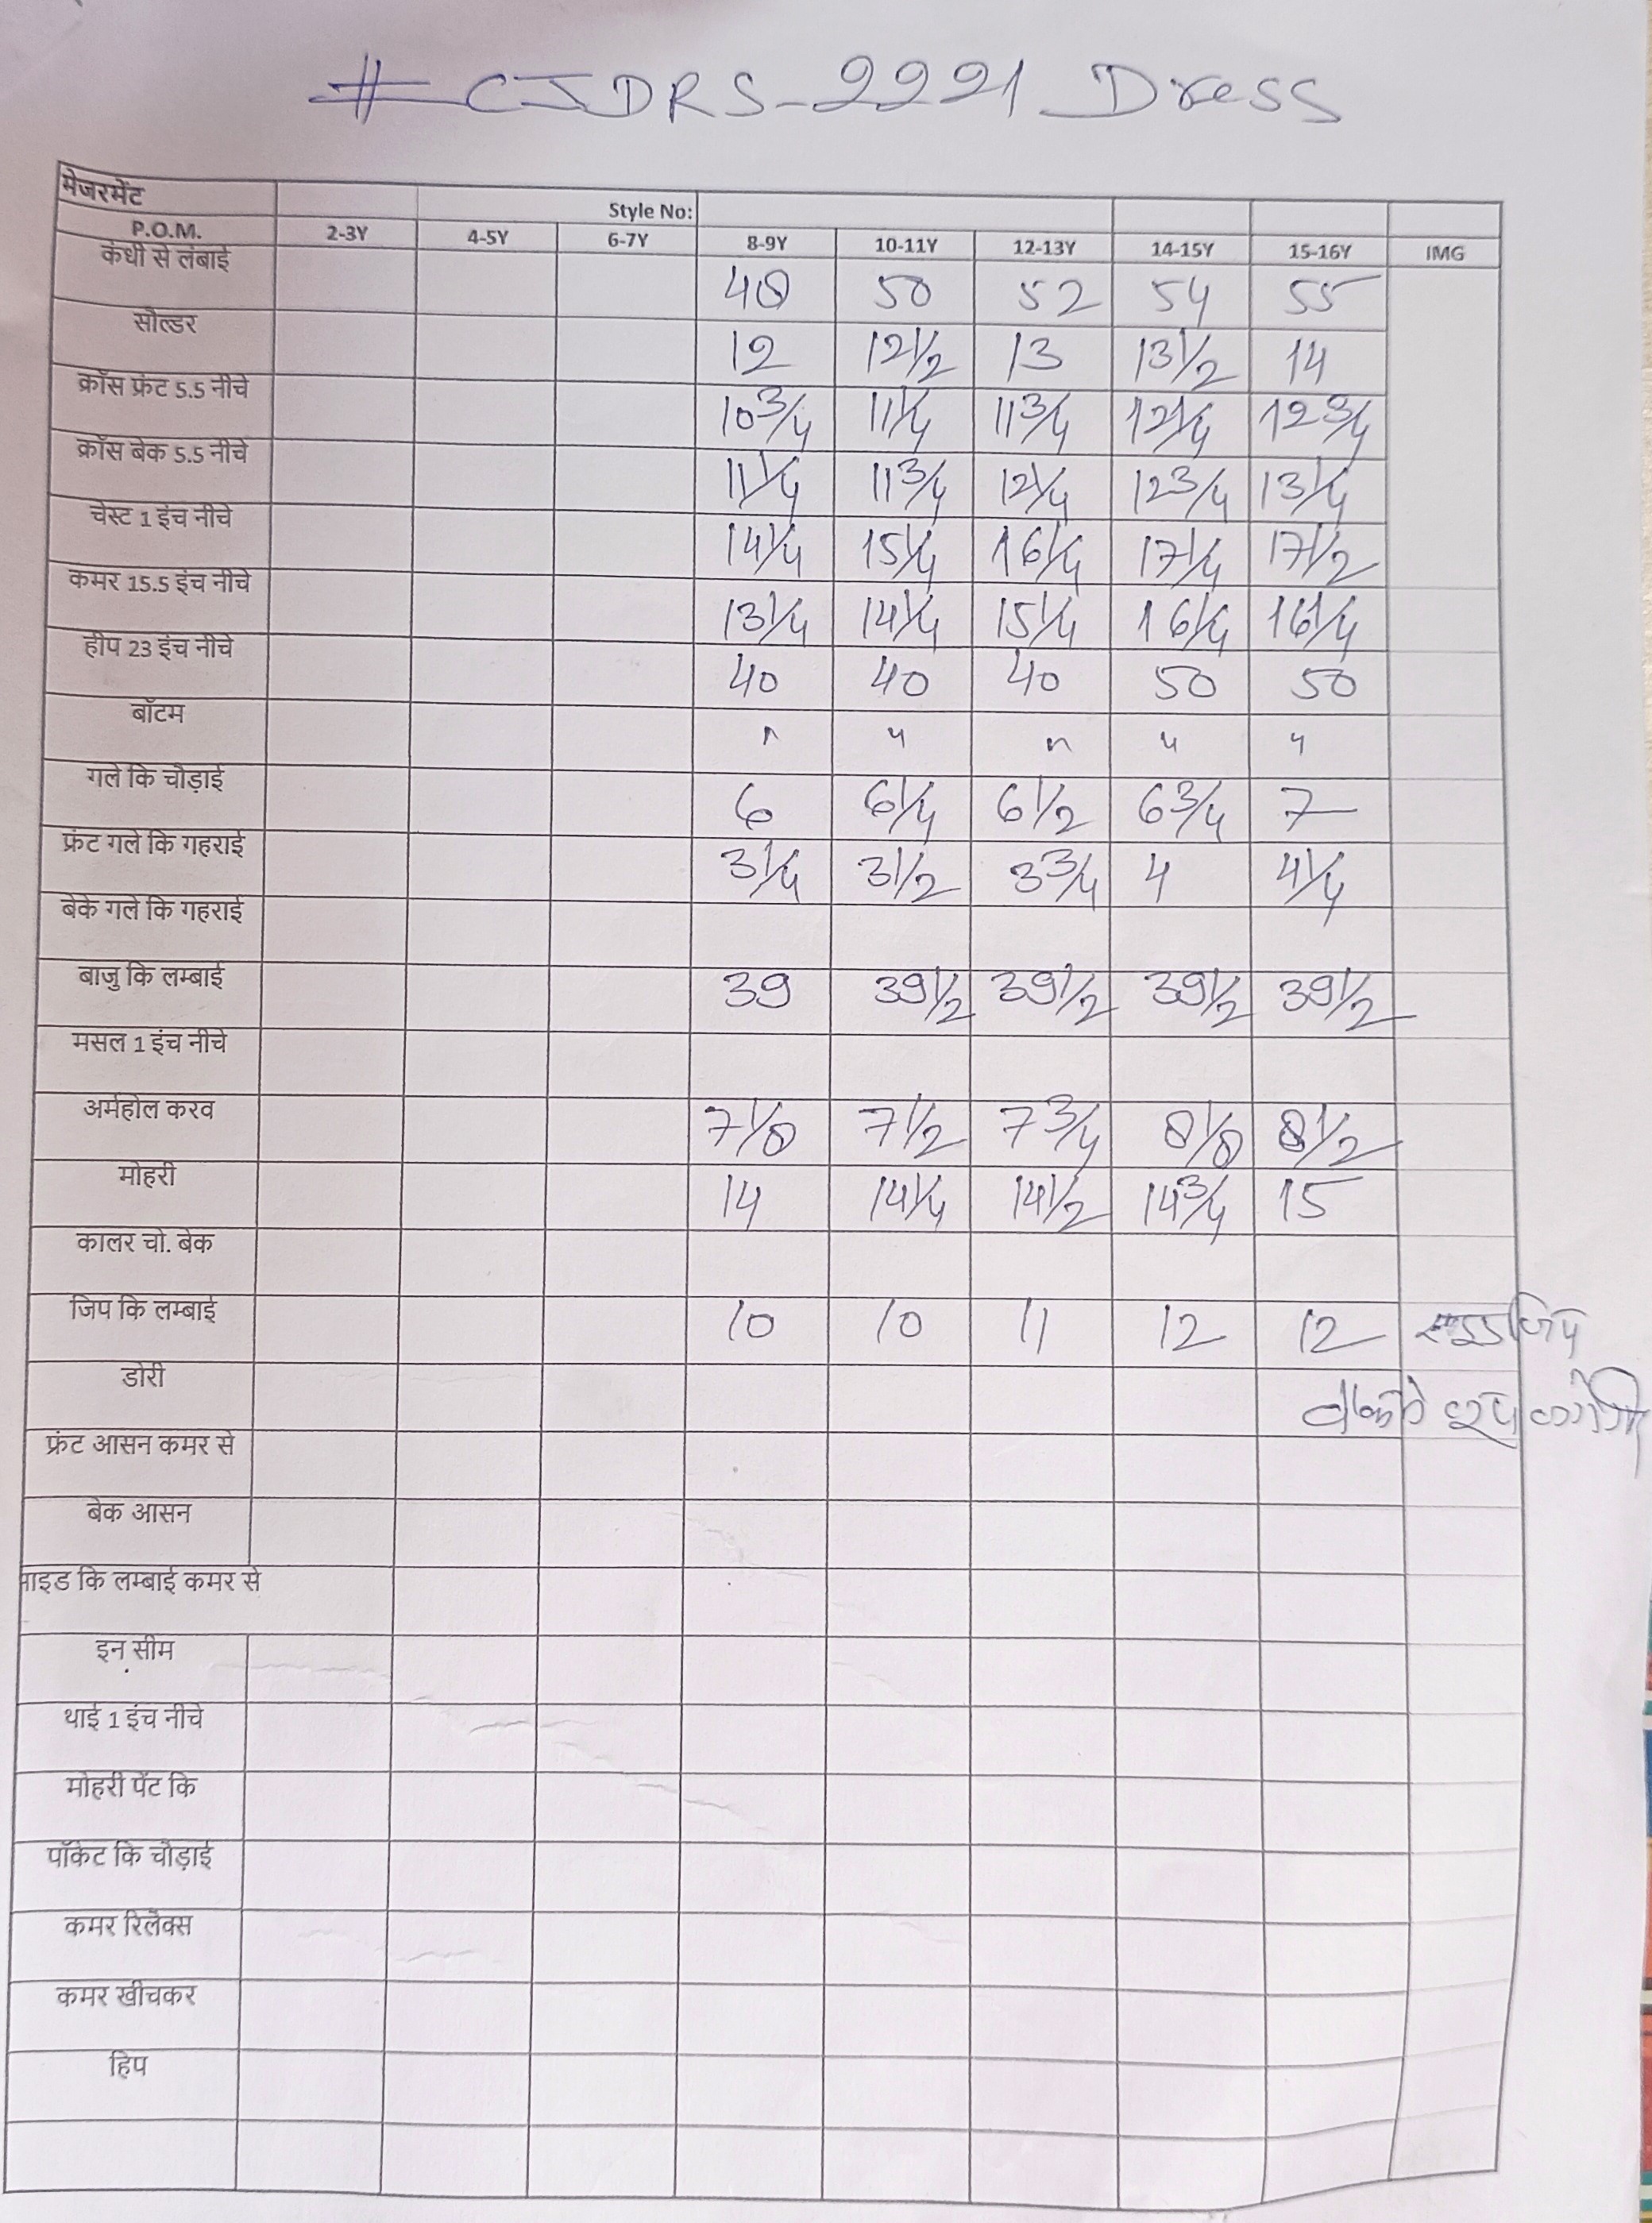 # CJDRS-2221 Dress
मेजरमेंट Style No:
P.O.M. 2-3Y 4-5Y 6-7Y 8-9Y 10-11Y 12-13Y 14-15Y 15-16Y IMG
कंधी से लंबाई 48 50 52 54 55
सोल्डर 12 12 1/2 13 13 1/2 14
क्रॉस फ्रंट 5.5 नीचे 10 3/4 11 1/4 11 3/4 12 1/4 12 3/4
क्रॉस बेक 5.5 नीचे 11 1/4 11 3/4 12 1/4 12 3/4 13 1/4
चेस्ट 1 इंच नीचे 14 1/4 15 1/4 16 1/4 17 1/4 17 1/2
कमर 15.5 इंच नीचे 13 1/4 14 1/4 15 1/4 16 1/4 16 1/4
हीप 23 इंच नीचे 40 40 40 50 50
बॉटम " " " " "
गले कि चौड़ाई 6 6 1/4 6 1/2 6 3/4 7
फ्रंट गले कि गहराई 3 1/4 3 1/2 3 3/4 4 4 1/4
बेके गले कि गहराई
बाजु कि लम्बाई 39 39 1/2 39 1/2 39 1/2 39 1/2
मसल 1 इंच नीचे
अर्महोल करव 7 1/8 7 1/2 7 3/4 8 1/8 8 1/2
मोहरी 14 14 1/4 14 1/2 14 3/4 15
कालर चो. बेक
जिप कि लम्बाई 10 10 11 12 12 जिप
डोरी
फ्रंट आसन कमर से
बेक आसन
साइड कि लम्बाई कमर से
इन सीम
थाई 1 इंच नीचे
मोहरी पेंट कि
पॉकेट कि चौड़ाई
कमर रिलेक्स
कमर खीचकर
हिप